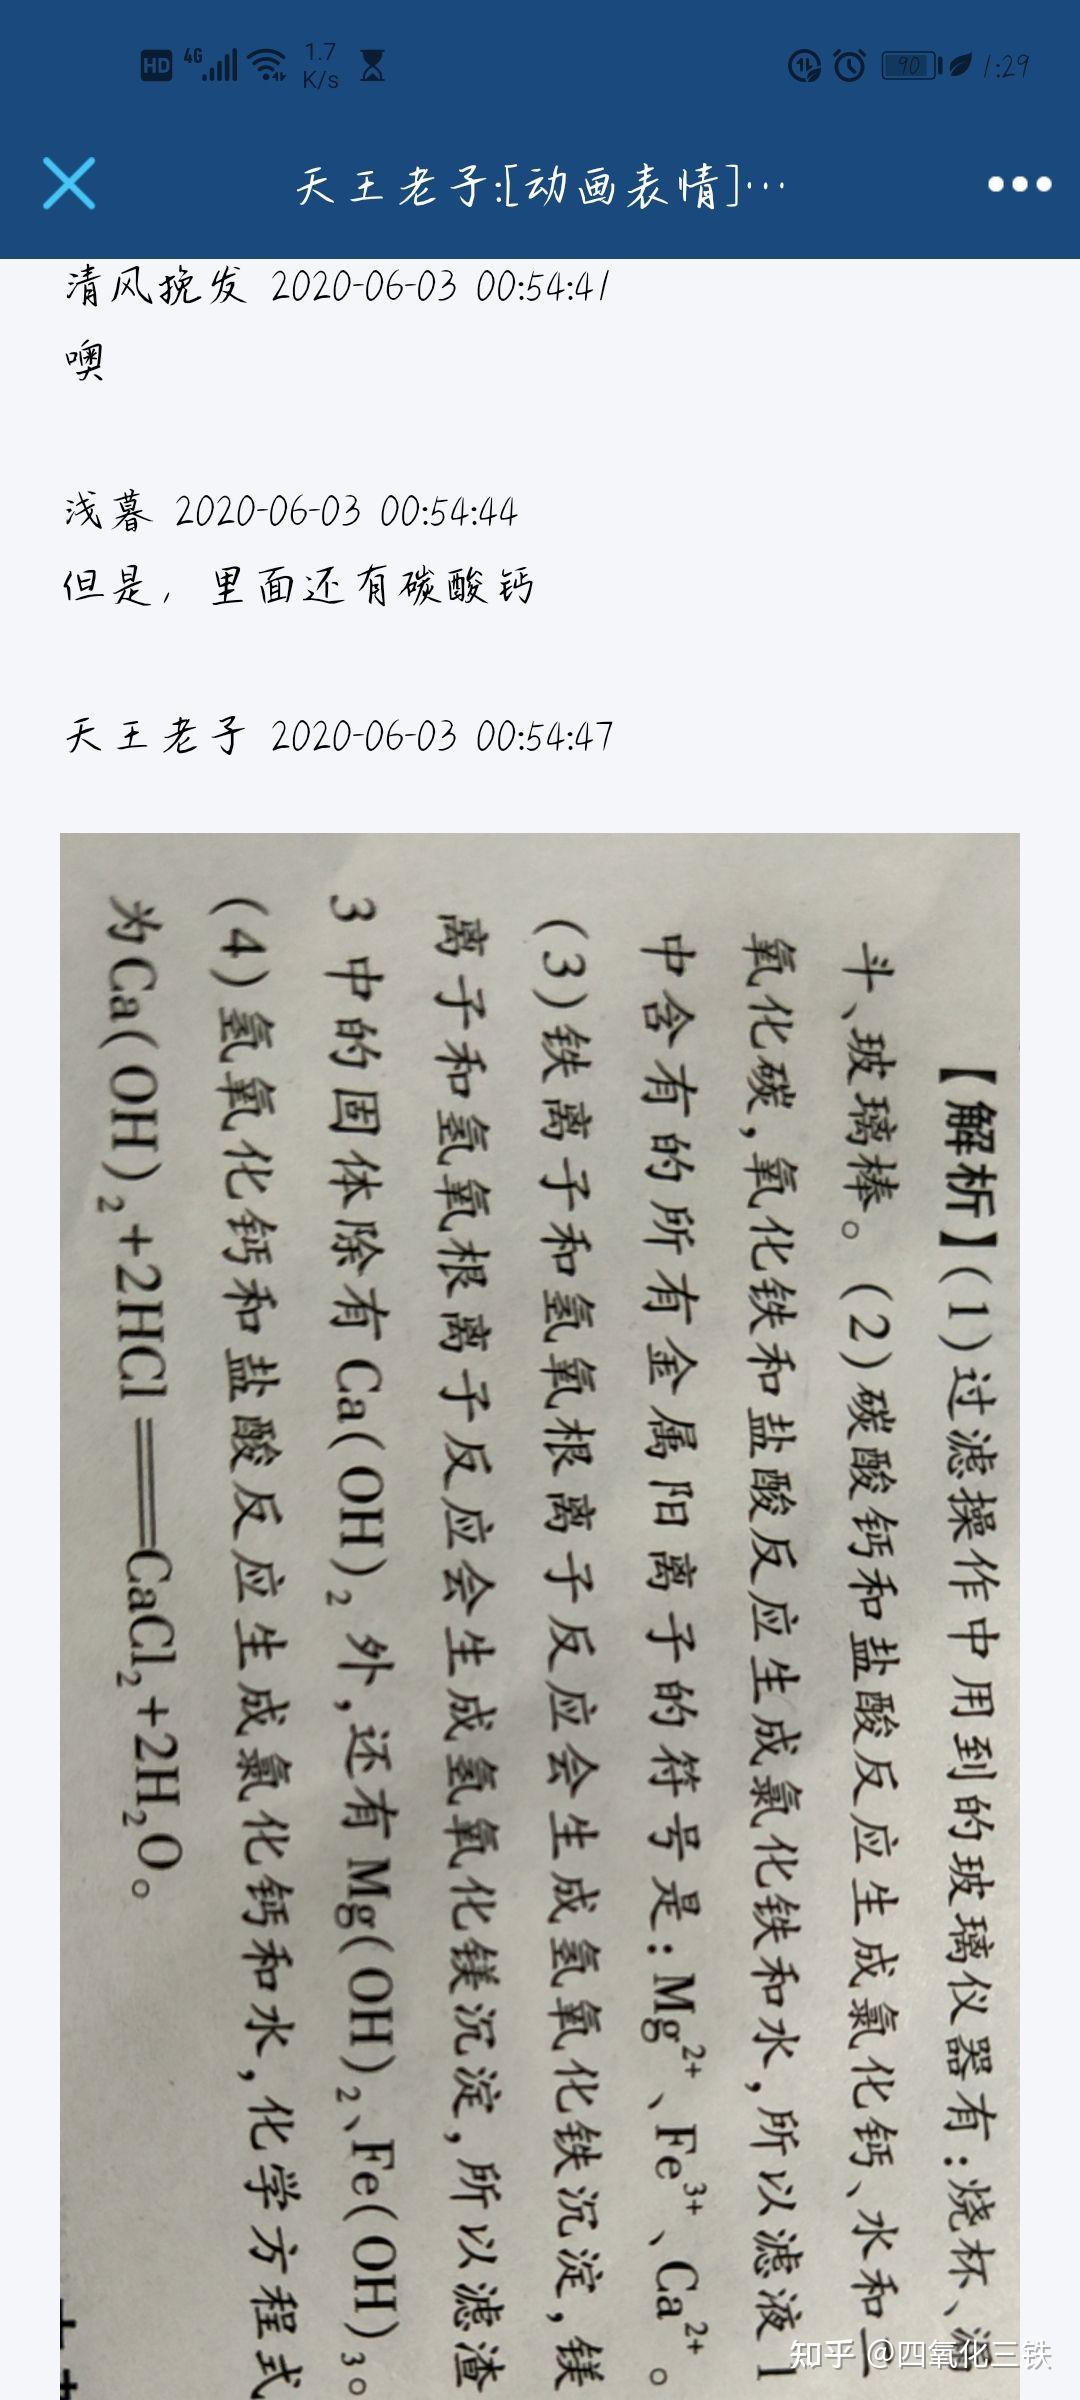 HD 4G 1.7 K/s 90 1:29
天王老子:[动画表情]···
清风挽发 2020-06-03 00:54:41
噢
浅暮 2020-06-03 00:54:44
但是，里面还有碳酸钙
天王老子 2020-06-03 00:54:47
【解析】(1)过滤操作中用到的玻璃仪器有:烧杯、漏
斗、玻璃棒。(2)碳酸钙和盐酸反应生成氯化钙、水和二
氧化碳,氧化铁和盐酸反应生成氯化铁和水,所以滤液1
中含有的所有金属阳离子的符号是:Mg²⁺、Fe³⁺、Ca²⁺。
(3)铁离子和氢氧根离子反应会生成氢氧化铁沉淀,镁
离子和氢氧根离子反应会生成氢氧化镁沉淀,所以滤渣
3中的固体除有Ca(OH)₂外,还有Mg(OH)₂、Fe(OH)₃。
(4)氢氧化钙和盐酸反应生成氯化钙和水,化学方程式
为Ca(OH)₂+2HCl═CaCl₂+2H₂O。
知乎 @四氧化三铁